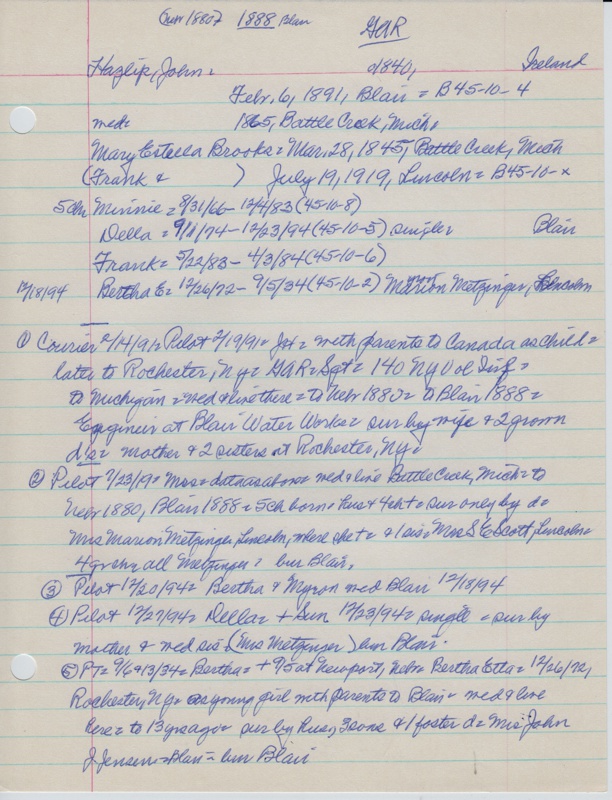 (Neb 1880) 1888 Blair
GAR
Hazlip, John = 1840, Ireland
Febr. 6, 1891, Blair = B45-10-4
med = 1865, Battle Creek, Mich.
Mary Estella Brooks = Mar. 28, 1845, Battle Creek, Mich
(Frank & ) July 19, 1919, Lincoln = B45-10-x
5ch Minnie = 8/31/66 - 12/4/83 (45-10-8)
Della = - 12/23/94 (45-10-5) single Blair
Frank = 5/22/83 - 4/3/84 (45-10-6)
12/18/94 Bertha E = 12/26/72 - 9/5/34 (45-10-2) Marion Metzinger, Lincoln
① Courier 2/14/91 = Pilot 2/19/91 = = with parents to Canada as child =
later to Rochester, Ny = GAR = Sgt = 140 Ny Vol Inf =
to Michigan = med & live there = to Nebr 1880 = to Blair 1888 =
Engineer at Blair Water Works = sur by wife & 2 grown
ds = mother & 2 sisters at Rochester, Ny =
② Pilot 7/23/19 = Mrs = data as above = med & live Battle Creek, Mich = to
Nebr 1880, Blair 1888 = 5ch born = hus & 4ch + = sur only by d =
Mrs Marion Metzinger, Lincoln, where she + = & 1 sis = Mrs S E Scott, Lincoln =
4 gr ch = all Metzinger = bur Blair.
③ Pilot 12/20/94 = Bertha & Myron med Blair 12/18/94
④ Pilot 12/27/94 = Della = + Sun 12/23/94 = single = sur by
mother & med sis = (Mrs Metzinger) bur Blair.
⑤ PT = 9/6 & 13/34 = Bertha = + 9/5 at Newport, Nebr = Bertha Etta = 12/26/72,
Rochester, Ny = as young girl with parents to Blair = med & live
here = to 13 yrs ago = sur by hus, 3 sons & 1 foster d = Mrs John
J. Jensen = Blair = bur Blair